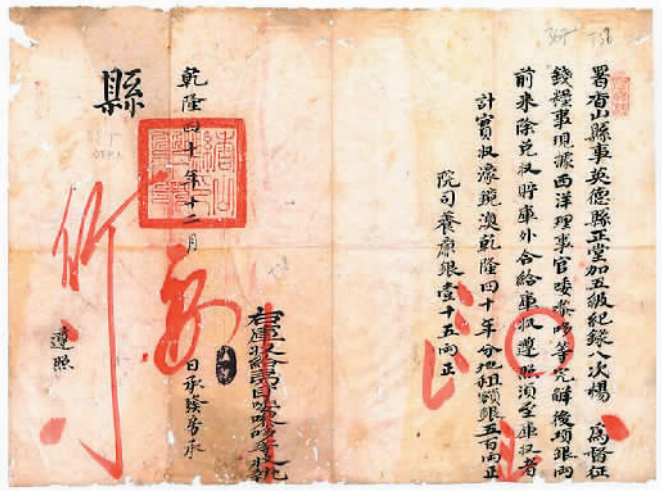 署香山縣事英德縣正堂加五級紀錄八次楊 為督征
錢糧事現據西洋理事官唩嚟哆等完解後項銀両
前來除兌收貯庫外合給庫收遵照須至庫收者
計實收濠鏡澳乾隆四十年分地租額銀五百両正
院司養廉銀壹十五両正
右庫收給夷目唩嚟哆等收執
乾隆四十年十二月 日承
縣
遵照